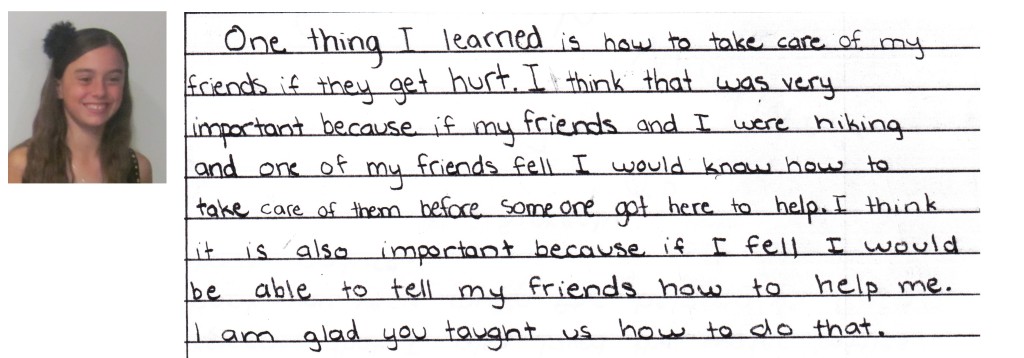 One thing I learned is how to take care of my
friends if they get hurt. I think that was very
important because if my friends and I were hiking
and one of my friends fell I would know how to
take care of them before someone got here to help. I think
it is also important because if I fell I would
be able to tell my friends how to help me.
I am glad you taught us how to do that.